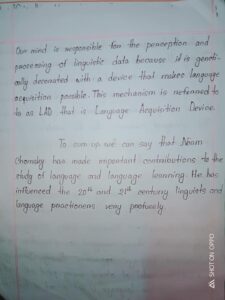 Our mind is responsible for the perception and
processing of linguistic data because it is geneti-
cally decorated with a device that makes language
acquisition possible. This mechanism is referred to
to as LAD that is Language Acquisition Device.
To sum up we can say that Noam
Chomsky has made important contributions to the
study of language and language learning. He has
influenced the 20th and 21st century linguists and
language practioners very profusely.
SHOT ON OPPO